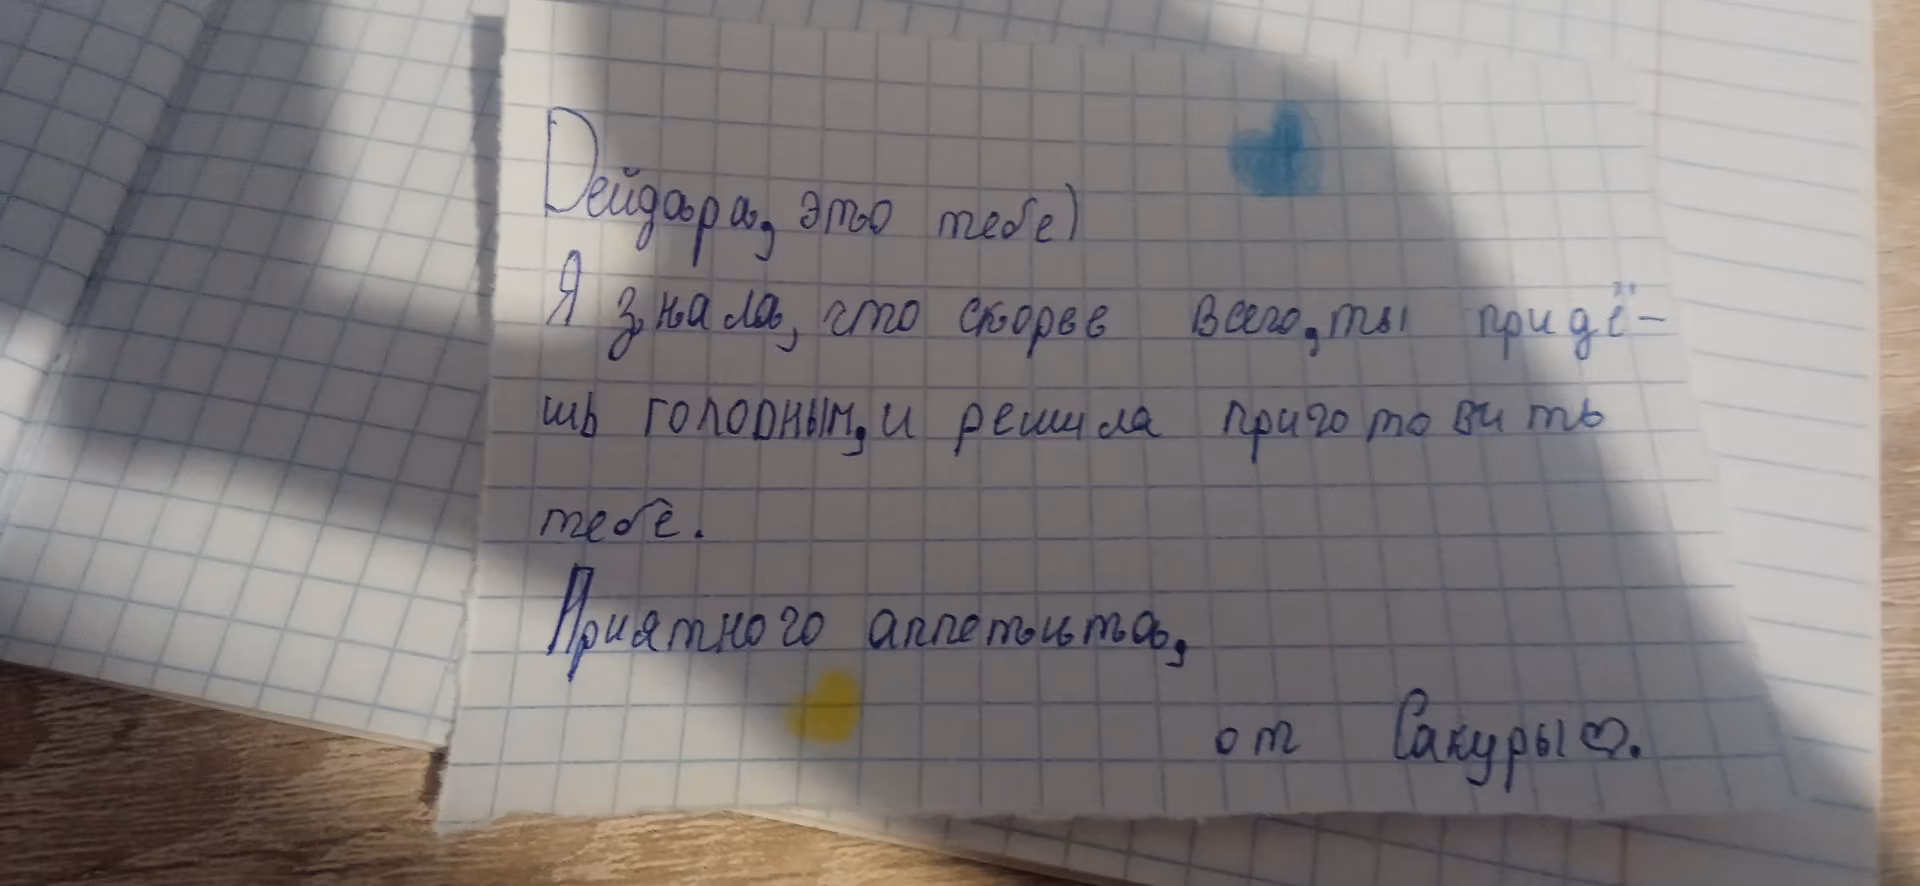 Дейдара, это тебе)
Я знала, что скорее всего, ты придё-
шь голодным, и решила приготовить
тебе.
Приятного аппетита,
от Сакуры♡.